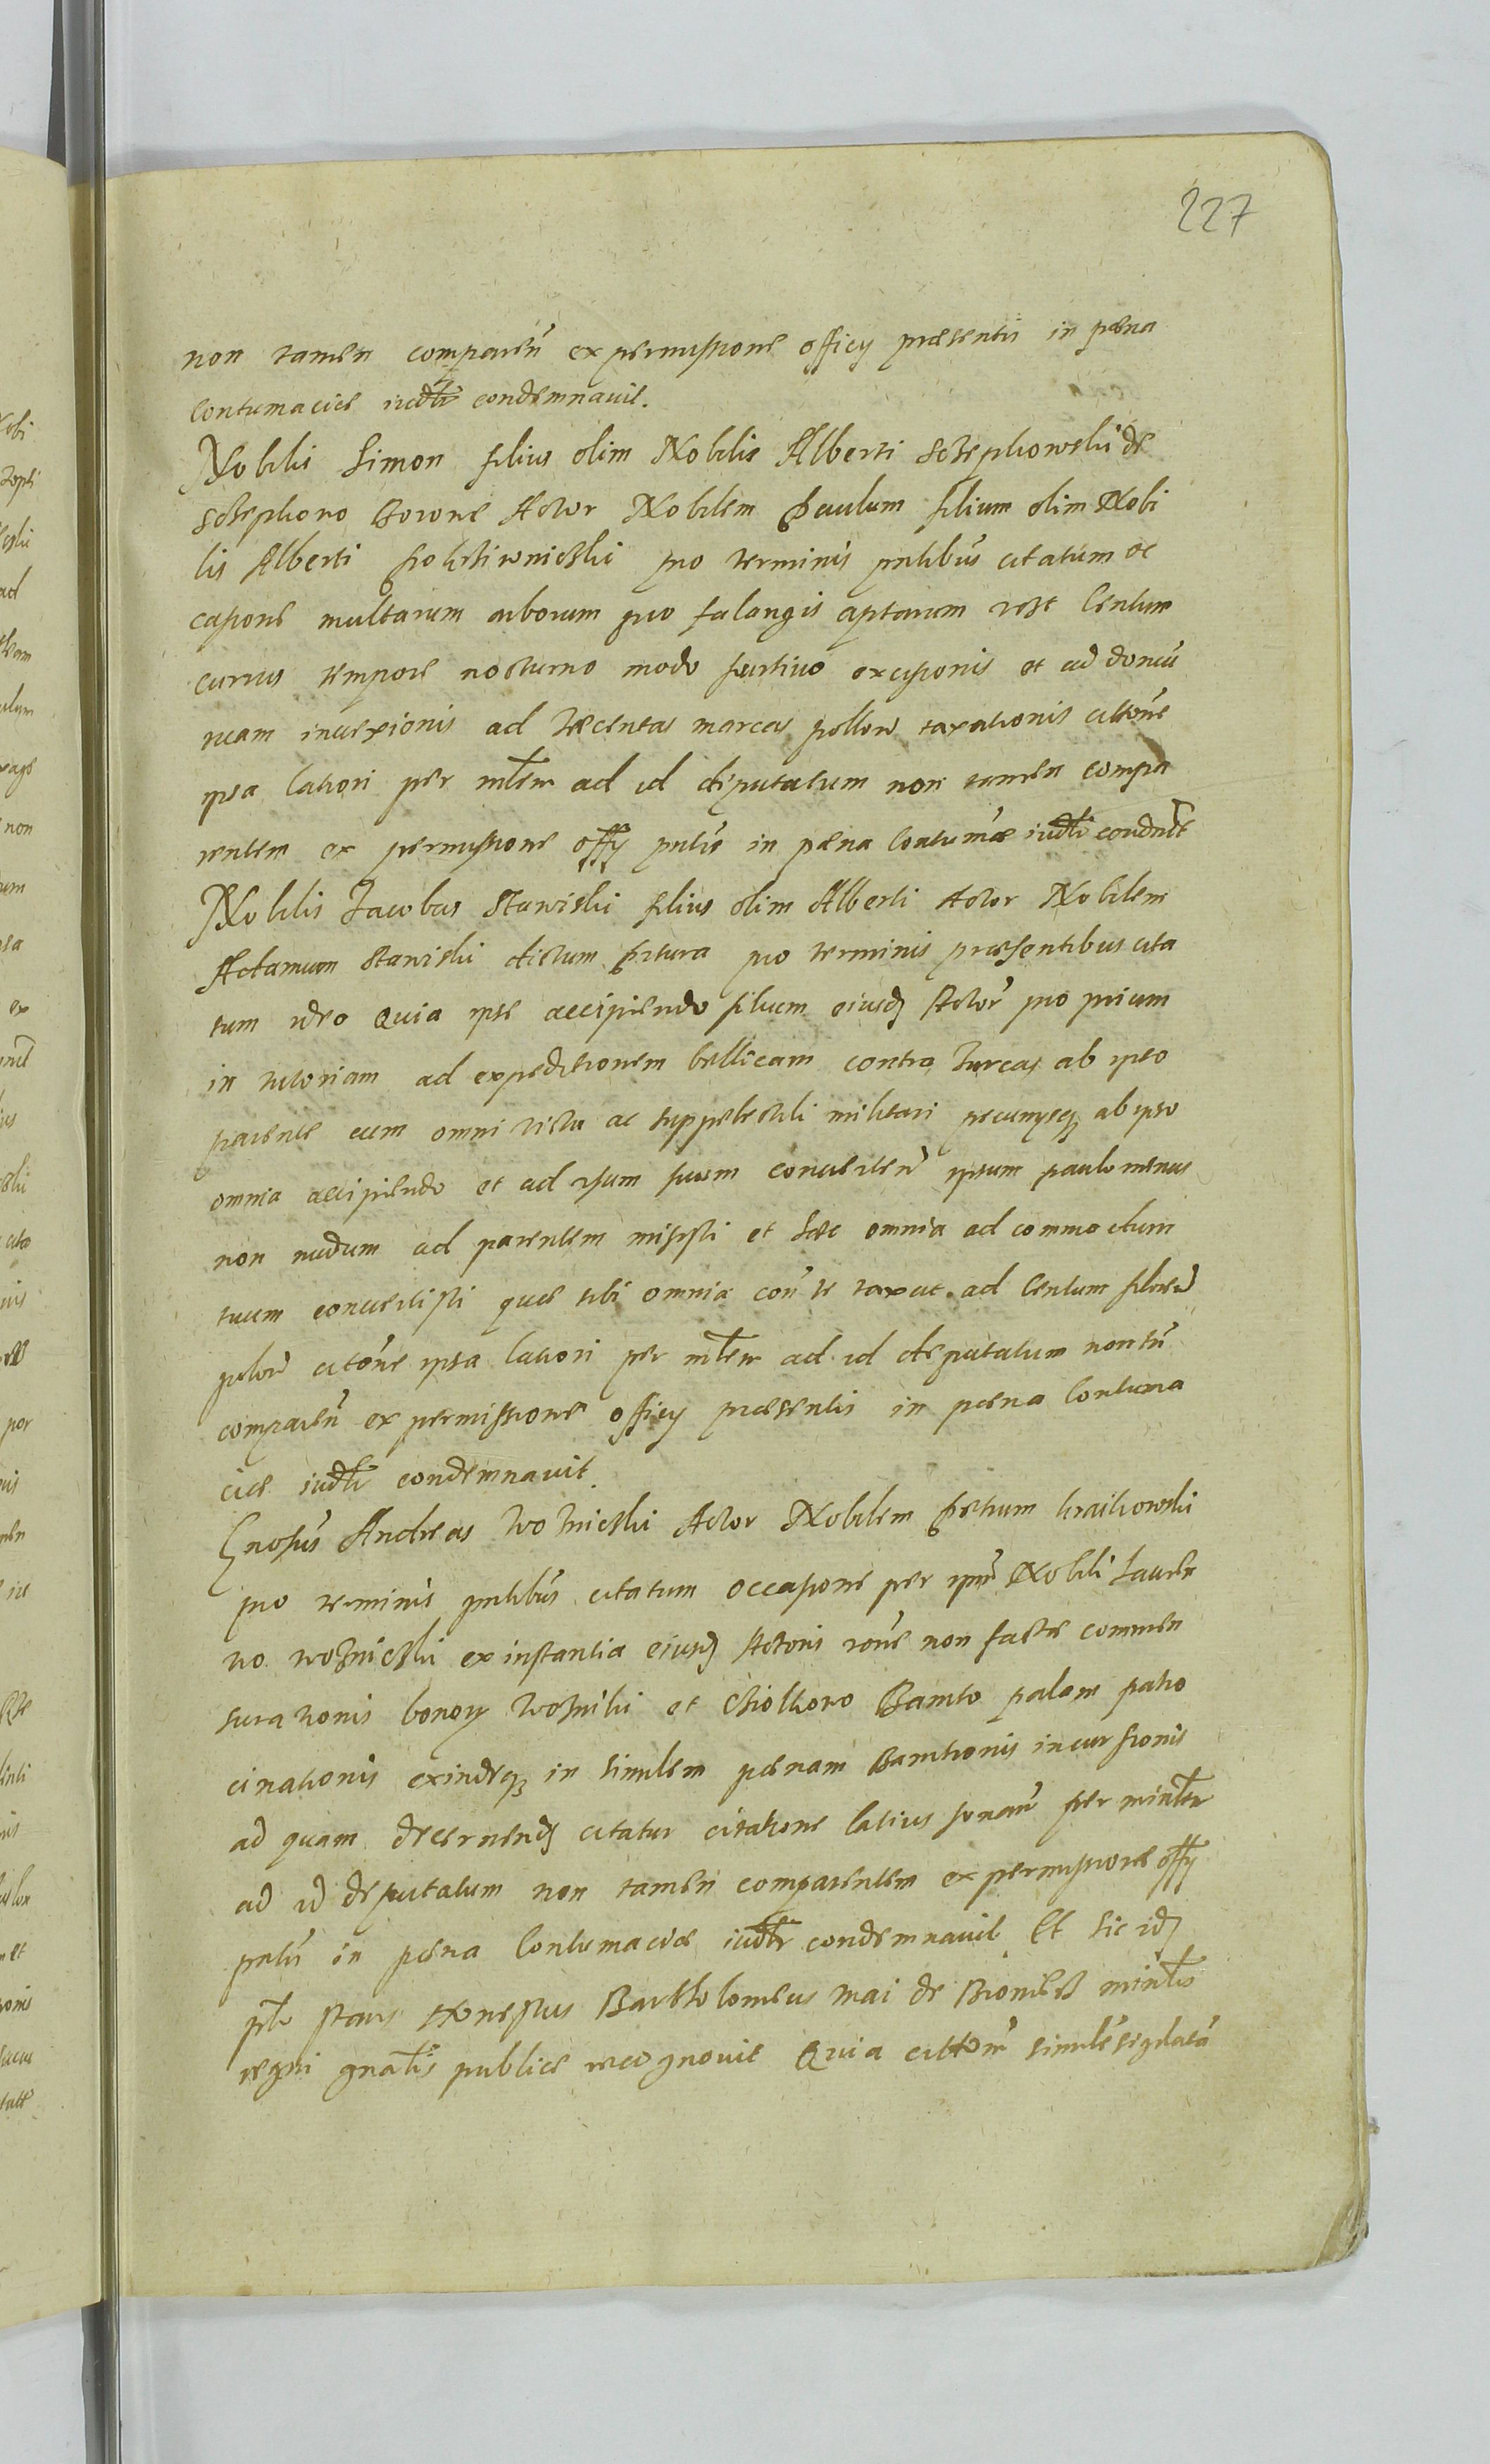 227
non tamen comparen̄ ex permissione officÿ præsentis in pæna
contumaciæ iudtr condemnavit.
Nobilis Simon filius olim Nobilis Alberti de
Actor Nobilem Paulum filium olim Nobi
lis Alberti pro terminis pntibus citatum oc
casione multarum arborum pro falangis aptarum vost Centum
currus tempore nocturno modo furtivo excisionis et ad domū
tuam invexionis ad trecentas marcas pollon taxationis cittōne
ipsa latiori per mtem ad id deputatum non tamen compa
rentem ex permissione offÿ pntis in pæna Contumæ iudtr condnvit
Nobilis Jacobus Stawiski filius olim Alberti Actor Nobilem
Adamum Stawiski dictum pro terminis præsentibus cita
tum ideo Quia ipse accipiendo filium eiusd Actor̄ pro prium
in tutoriam ad expeditionem bellicam contra Turcas ab ipso
parente cum omni victu ac suppelectili militari pecunysq ab ipso
omnia accipiendo et ad usum suum converten̄ ipsum paulominus
non nudum ad parentem misisti et hæc omnia ad commodum
tuum convertisti quæ sibi omnia con te taxat ad Centum floren̄
polon̄ citōne ipsa latiori per mtem ad id deputatum non tn̄
comparen̄ ex permissione officÿ præsentis in pæna Contuma
ciæ iudtr condemnavit.
Gnosus Andreas Wozniczki Actor Nobilem Petrum
pro terminis pntibus citatum occasione per ipm̄ Nobili Lauren
tio Wozniczki ex instantia eiusd Actoris rōne non factæ commen
surationis bonor et Bannito palam patro
cinationis exindeq in similem pænam Bannitionis incursionis
ad quam decernend citatur citatione latius sonan̄ per mintm
ad id deputatum non tamen comparentem ex permissione offÿ
pntis in pæna Contumaciæ iudtr condemnavit Et sic id
ptr stans Honestus Bartholomeus mai de mintris
regni gnalis publice recognovit Quia cittom̄